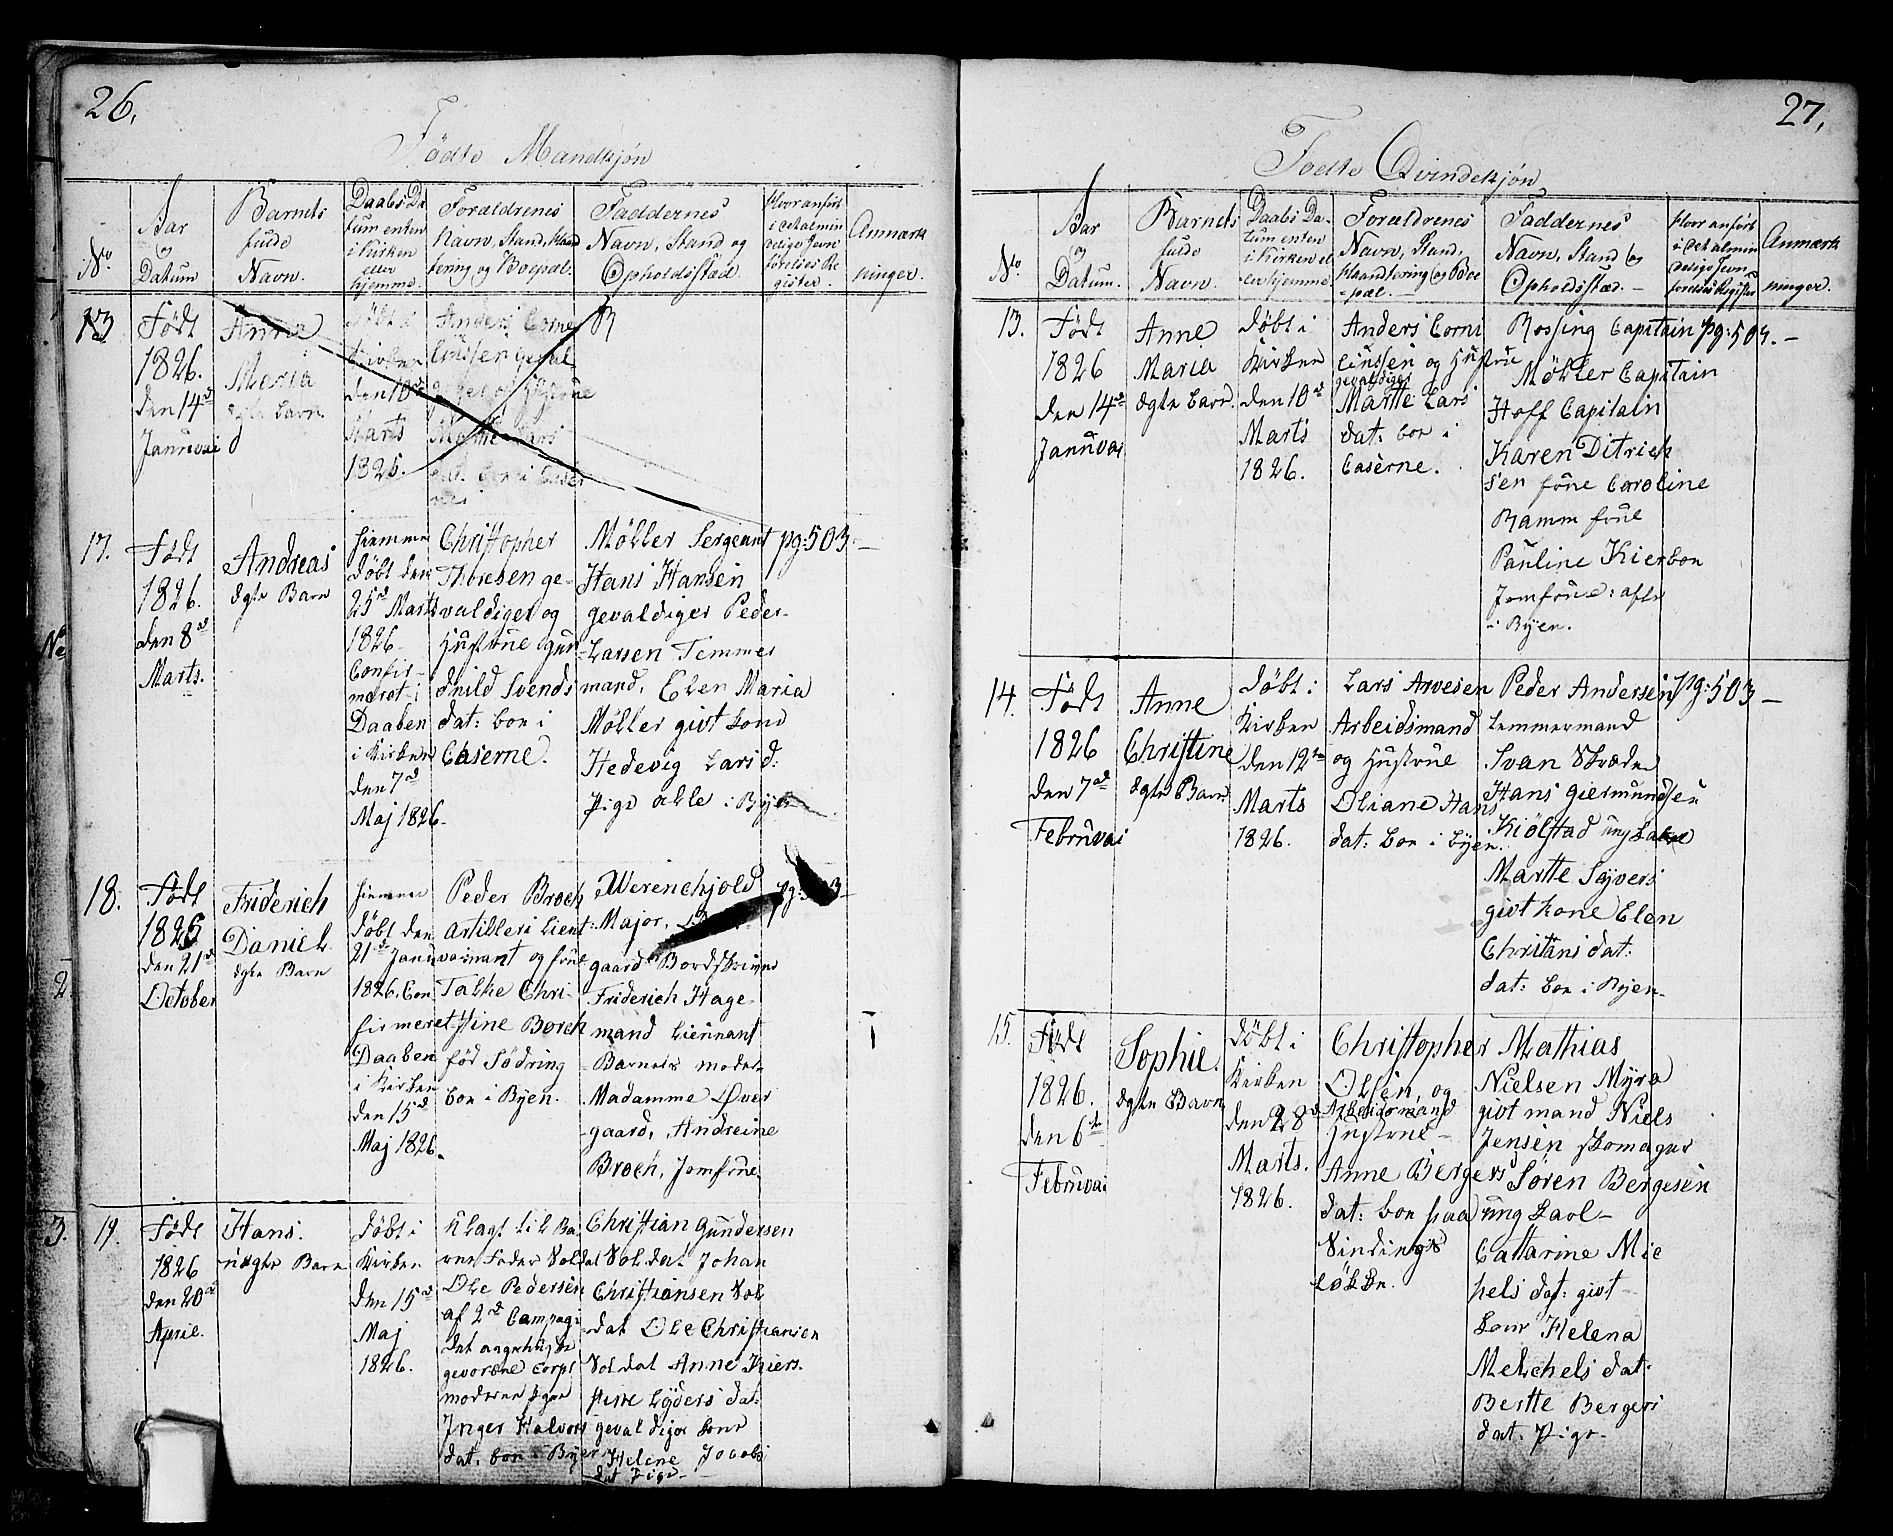 26.
Födte Mandkjön
No
Aar og Datum
Barnets fulde Navn.
Daabs Datum enten i Kirken eller hjemme.
Forældrenes Navn, Stand, Haandtering og Boepæl.
Faddernes Navn, Stand og Opholdsstæd.
Hvor anført i det almindelige Jevnförelses Register.
Anmærkninger.
13
Födt
1826.
den 14d
Januvai
Anna
Maria
ægte barn
döbt i
Kirken
den 10d
Marts
1826.
Anders Corne
liussen geval
diger og Hustrue
Marthe Lars
dat: boe i Caser
nes
17.
Födt
1826.
den 8d
Marts.
Andreas
ægte Barn
hiemme
döbt den
25d Marts
1826
Confir-
meret i
Daaben
i Kirken
den 7d
Maj 1826.
Christopher
Thoresen ge-
valdiger og
Hustrue Gun-
dnild Svends
dat: boe i
Caserne.
Möller Sergeant
Hans Hansen
gevaldiger Peder
Larsen Temmer
mand, Elen Maria
Möller givt kone
Hedevig Lars d:
Pige alle i Byen
pg: 503 -
18.
Födt
1825
den 21d
October
Friderich
Daniel
ægte Barn
hiemme
döbt den
21d Janu
1826. Con
firmeret
Daaben
i Kirken
den 15d
Maj 1826.
Peder Broch
Artilleri Lieut:
nant og frue
Talke Chri-
stine Borch
föd Södring
boe i Byen.
Werenchjold
Major,
gaard Bordskriver
Friderich Hage
mand Lieunant
Barnets moder
Madamme Over
gaard, Andreine
Broch, Jomfrue
pg: 503-
19.
Födt
1826
den 20d
Aprie.
Hans.
uægte Barn
döbt i
Kirken
den 15d
Maj
1826.
Klagt til Ba
rne Fader Soldat
Ole Pedersen
af 2d Campagi
det aagerhuske
gevorbne Corps
moderen pigen
Inger Halvors
dat. boe i Byen
Christian Gundersen
Soldat Johan
Christiansen Sol
dat Ole Christiansen
Soldat Anne Kiers.
stine Lyders dat.
gevaldiger kone
Helene Jacobs
dat Pige -
27.
Födte Qvindekjön
No.
Aar og Datum.
Barnets fulde Navn.
Daabs Datum enten i Kirken eller hjemme
Forældrenes Navn, Stand, Haandtering og Boepæl. -
Faddernes Navn, Stand og Opholdsstæd. -
Hvor anført i det almindelige Jevnförelses Register
Anmærkninger.
13.
Födt
1826
den 14d
Januvai
Anne
Maria
ægte barn.
döbt i
Kirken
den 10d
Marts
1826.
Anders Corni
liussen og Hustrue
gevaldiger
Martte Lars
dat: boe i
Caserne.
Rosing Capitain
Möller Capitain
Hoff Capitain
Karen Ditrich
sen frue Caroline
Ramm frue
Pauline Kierboe
Jomfrue: alle
i Byen.
pg: 503. -
14.
Födt
1826
den 7d
Februvai
Anne
Christine
ægte Barn
döbt i
Kirken
den 12te
Marts
1826.
Lars Arvesen
Arbeidsmand
og Hustrue
Oliane Hans
dat: boe i Byen.
Peder Andersen
temmermand
Svan Skræder
Hans Giermundsen
Kiölstad ung Karl
Martte Syvers
givt kone Elen
Christans dat:
dat: boe i Byen-
pg: 503 -
15.
Födt
1826.
den 6te
Februvai
Sophie.
ægte Barn
döbt i
Kirken
den 28d
Marts.
1826.
Christopher
Olsen, og
Arbeidsmand
Hustrue -
Anne Bergers
dat: boe paa
Vindings
Lökke.
Mathias
Nielsen Myra
givt mand Niels
Jensen skomager
Sören Bergesen
ung Karl -
Cattarine Mic
hels dat: givt
kone Helena
Melchels dat:
Bertte Bergers
dat. Pige.